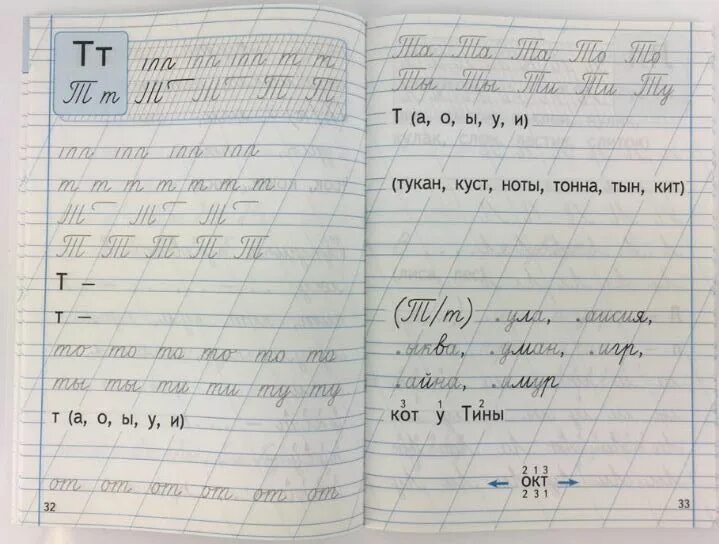 Тт т т
Т т Т Т Т
т т т т т т т
Т Т Т Т Т
Т –
т –
то то та то то та
ты ты ти ти ту ту
т (а, о, ы, у, и)
от от от от от от
32
Та Та Та То То
Ты Ты Ти Ти Ту
Т (а, о, ы, у, и)
(тукан, куст, ноты, тонна, тын, кит)
(Т/т) .ула, .аисия,
.ыква, .уман, .игр,
.айна, .имур
3 1 2
кот у Тины
2 1 3
← окт →
2 3 1
33